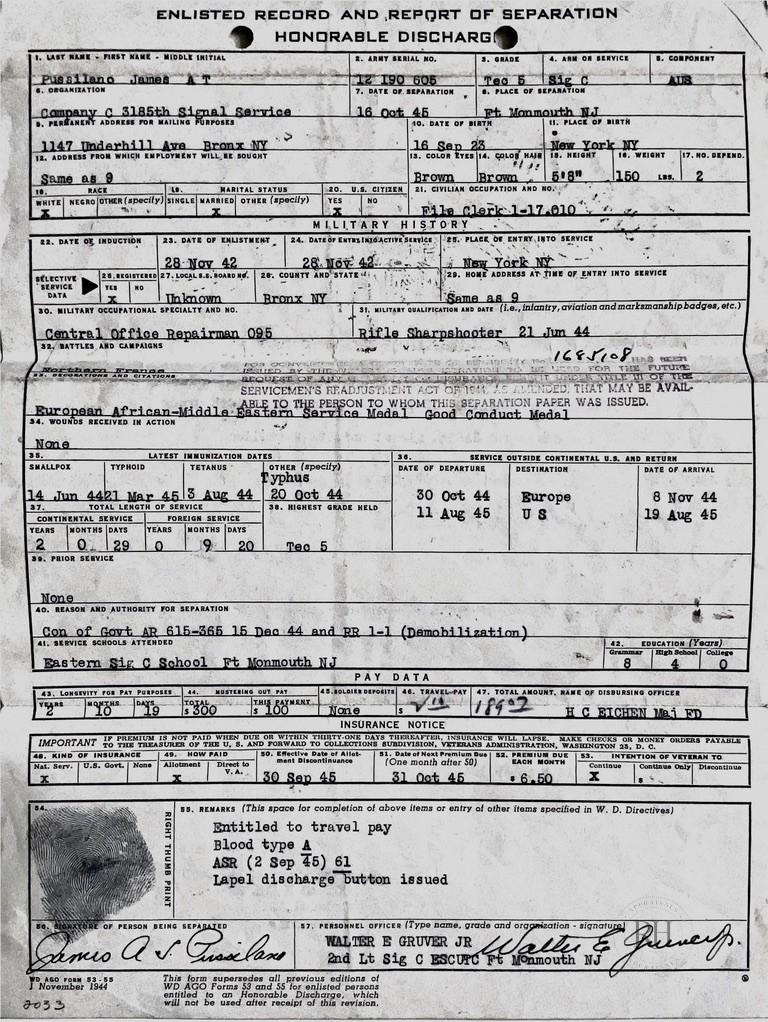 ENLISTED RECORD AND REPORT OF SEPARATION
HONORABLE DISCHARGE
1. LAST NAME - FIRST NAME - MIDDLE INITIAL 2. ARMY SERIAL NO. 3. GRADE 4. ARM OR SERVICE 5. COMPONENT
Pussilano James A T 12 190 605 Tec 5 Sig C AUS
6. ORGANIZATION 7. DATE OF SEPARATION 8. PLACE OF SEPARATION
Company C 3185th Signal Service 16 Oct 45 Ft Monmouth NJ
9. PERMANENT ADDRESS FOR MAILING PURPOSES 10. DATE OF BIRTH 11. PLACE OF BIRTH
1147 Underhill Ave Bronx NY 16 Sep 23 New York NY
12. ADDRESS FROM WHICH EMPLOYMENT WILL BE SOUGHT 13. COLOR EYES 14. COLOR HAIR 15. HEIGHT 16. WEIGHT 17. NO. DEPEND.
Same as 9 Brown Brown 5'8" 150 LBS. 2
18. RACE 19. MARITAL STATUS 20. U.S. CITIZEN 21. CIVILIAN OCCUPATION AND NO.
WHITE NEGRO OTHER (specify) SINGLE MARRIED OTHER (specify) YES NO
X X X File Clerk 1-17.010
MILITARY HISTORY
22. DATE OF INDUCTION 23. DATE OF ENLISTMENT 24. DATE OF ENTRY INTO ACTIVE SERVICE 25. PLACE OF ENTRY INTO SERVICE
28 Nov 42 28 Nov 42 New York NY
SELECTIVE SERVICE DATA 26. REGISTERED 27. LOCAL S.S. BOARD NO. 28. COUNTY AND STATE 29. HOME ADDRESS AT TIME OF ENTRY INTO SERVICE
YES NO
X Unknown Bronx NY Same as 9
30. MILITARY OCCUPATIONAL SPECIALTY AND NO. 31. MILITARY QUALIFICATION AND DATE (i.e., infantry, aviation and marksmanship badges, etc.)
Central Office Repairman 095 Rifle Sharpshooter 21 Jun 44
32. BATTLES AND CAMPAIGNS
1685108
HAS BEEN
ISSUED BY THE TO BE USED FOR THE FUTURE
Northern France
33. DECORATIONS AND CITATIONS
REQUEST OF ANY UNDER TITLE III OF THE
SERVICEMEN'S READJUSTMENT ACT OF 1944, AS AMENDED, THAT MAY BE AVAIL-
ABLE TO THE PERSON TO WHOM THIS SEPARATION PAPER WAS ISSUED.
European African-Middle Eastern Service Medal Good Conduct Medal
34. WOUNDS RECEIVED IN ACTION
None
35. LATEST IMMUNIZATION DATES 36. SERVICE OUTSIDE CONTINENTAL U.S. AND RETURN
SMALLPOX TYPHOID TETANUS OTHER (specify) DATE OF DEPARTURE DESTINATION DATE OF ARRIVAL
Typhus
14 Jun 44 21 Mar 45 3 Aug 44 20 Oct 44 30 Oct 44 Europe 8 Nov 44
37. TOTAL LENGTH OF SERVICE 38. HIGHEST GRADE HELD 11 Aug 45 U S 19 Aug 45
CONTINENTAL SERVICE FOREIGN SERVICE
YEARS MONTHS DAYS YEARS MONTHS DAYS
2 0 29 0 9 20 Tec 5
39. PRIOR SERVICE
None
40. REASON AND AUTHORITY FOR SEPARATION
Con of Govt AR 615-365 15 Dec 44 and RR 1-1 (Demobilization)
41. SERVICE SCHOOLS ATTENDED 42. EDUCATION (Years)
Grammar High School College
Eastern Sig C School Ft Monmouth NJ 8 4 0
PAY DATA
43. LONGEVITY FOR PAY PURPOSES 44. MUSTERING OUT PAY 45. SOLDIER DEPOSITS 46. TRAVEL PAY 47. TOTAL AMOUNT, NAME OF DISBURSING OFFICER
YEARS MONTHS DAYS TOTAL THIS PAYMENT
2 10 19 $ 300 $ 100 None $ H C EICHEN Maj FD
INSURANCE NOTICE
IMPORTANT IF PREMIUM IS NOT PAID WHEN DUE OR WITHIN THIRTY-ONE DAYS THEREAFTER, INSURANCE WILL LAPSE. MAKE CHECKS OR MONEY ORDERS PAYABLE
TO THE TREASURER OF THE U. S. AND FORWARD TO COLLECTIONS SUBDIVISION, VETERANS ADMINISTRATION, WASHINGTON 25, D. C.
48. KIND OF INSURANCE 49. HOW PAID 50. Effective Date of Allotment Discontinuance 51. Date of Next Premium Due (One month after 50) 52. PREMIUM DUE EACH MONTH 53. INTENTION OF VETERAN TO
Nat. Serv. U.S. Govt. None Allotment Direct to V.A. Continue Continue Only Discontinue
X X 30 Sep 45 31 Oct 45 $ 6.50 X $
54. 55. REMARKS (This space for completion of above items or entry of other items specified in W. D. Directives)
RIGHT THUMB PRINT
Entitled to travel pay
Blood type A
ASR (2 Sep 45) 61
Lapel discharge button issued
56. SIGNATURE OF PERSON BEING SEPARATED 57. PERSONNEL OFFICER (Type name, grade and organization - signature)
James A. T. Pussilano WALTER E GRUVER JR Walter E Gruver Jr.
2nd Lt Sig C ESCUTC Ft Monmouth NJ
WD AGO FORM 53-55
1 November 1944
This form supersedes all previous editions of
WD AGO Forms 53 and 55 for enlisted persons
entitled to an Honorable Discharge, which
will not be used after receipt of this revision.
2033